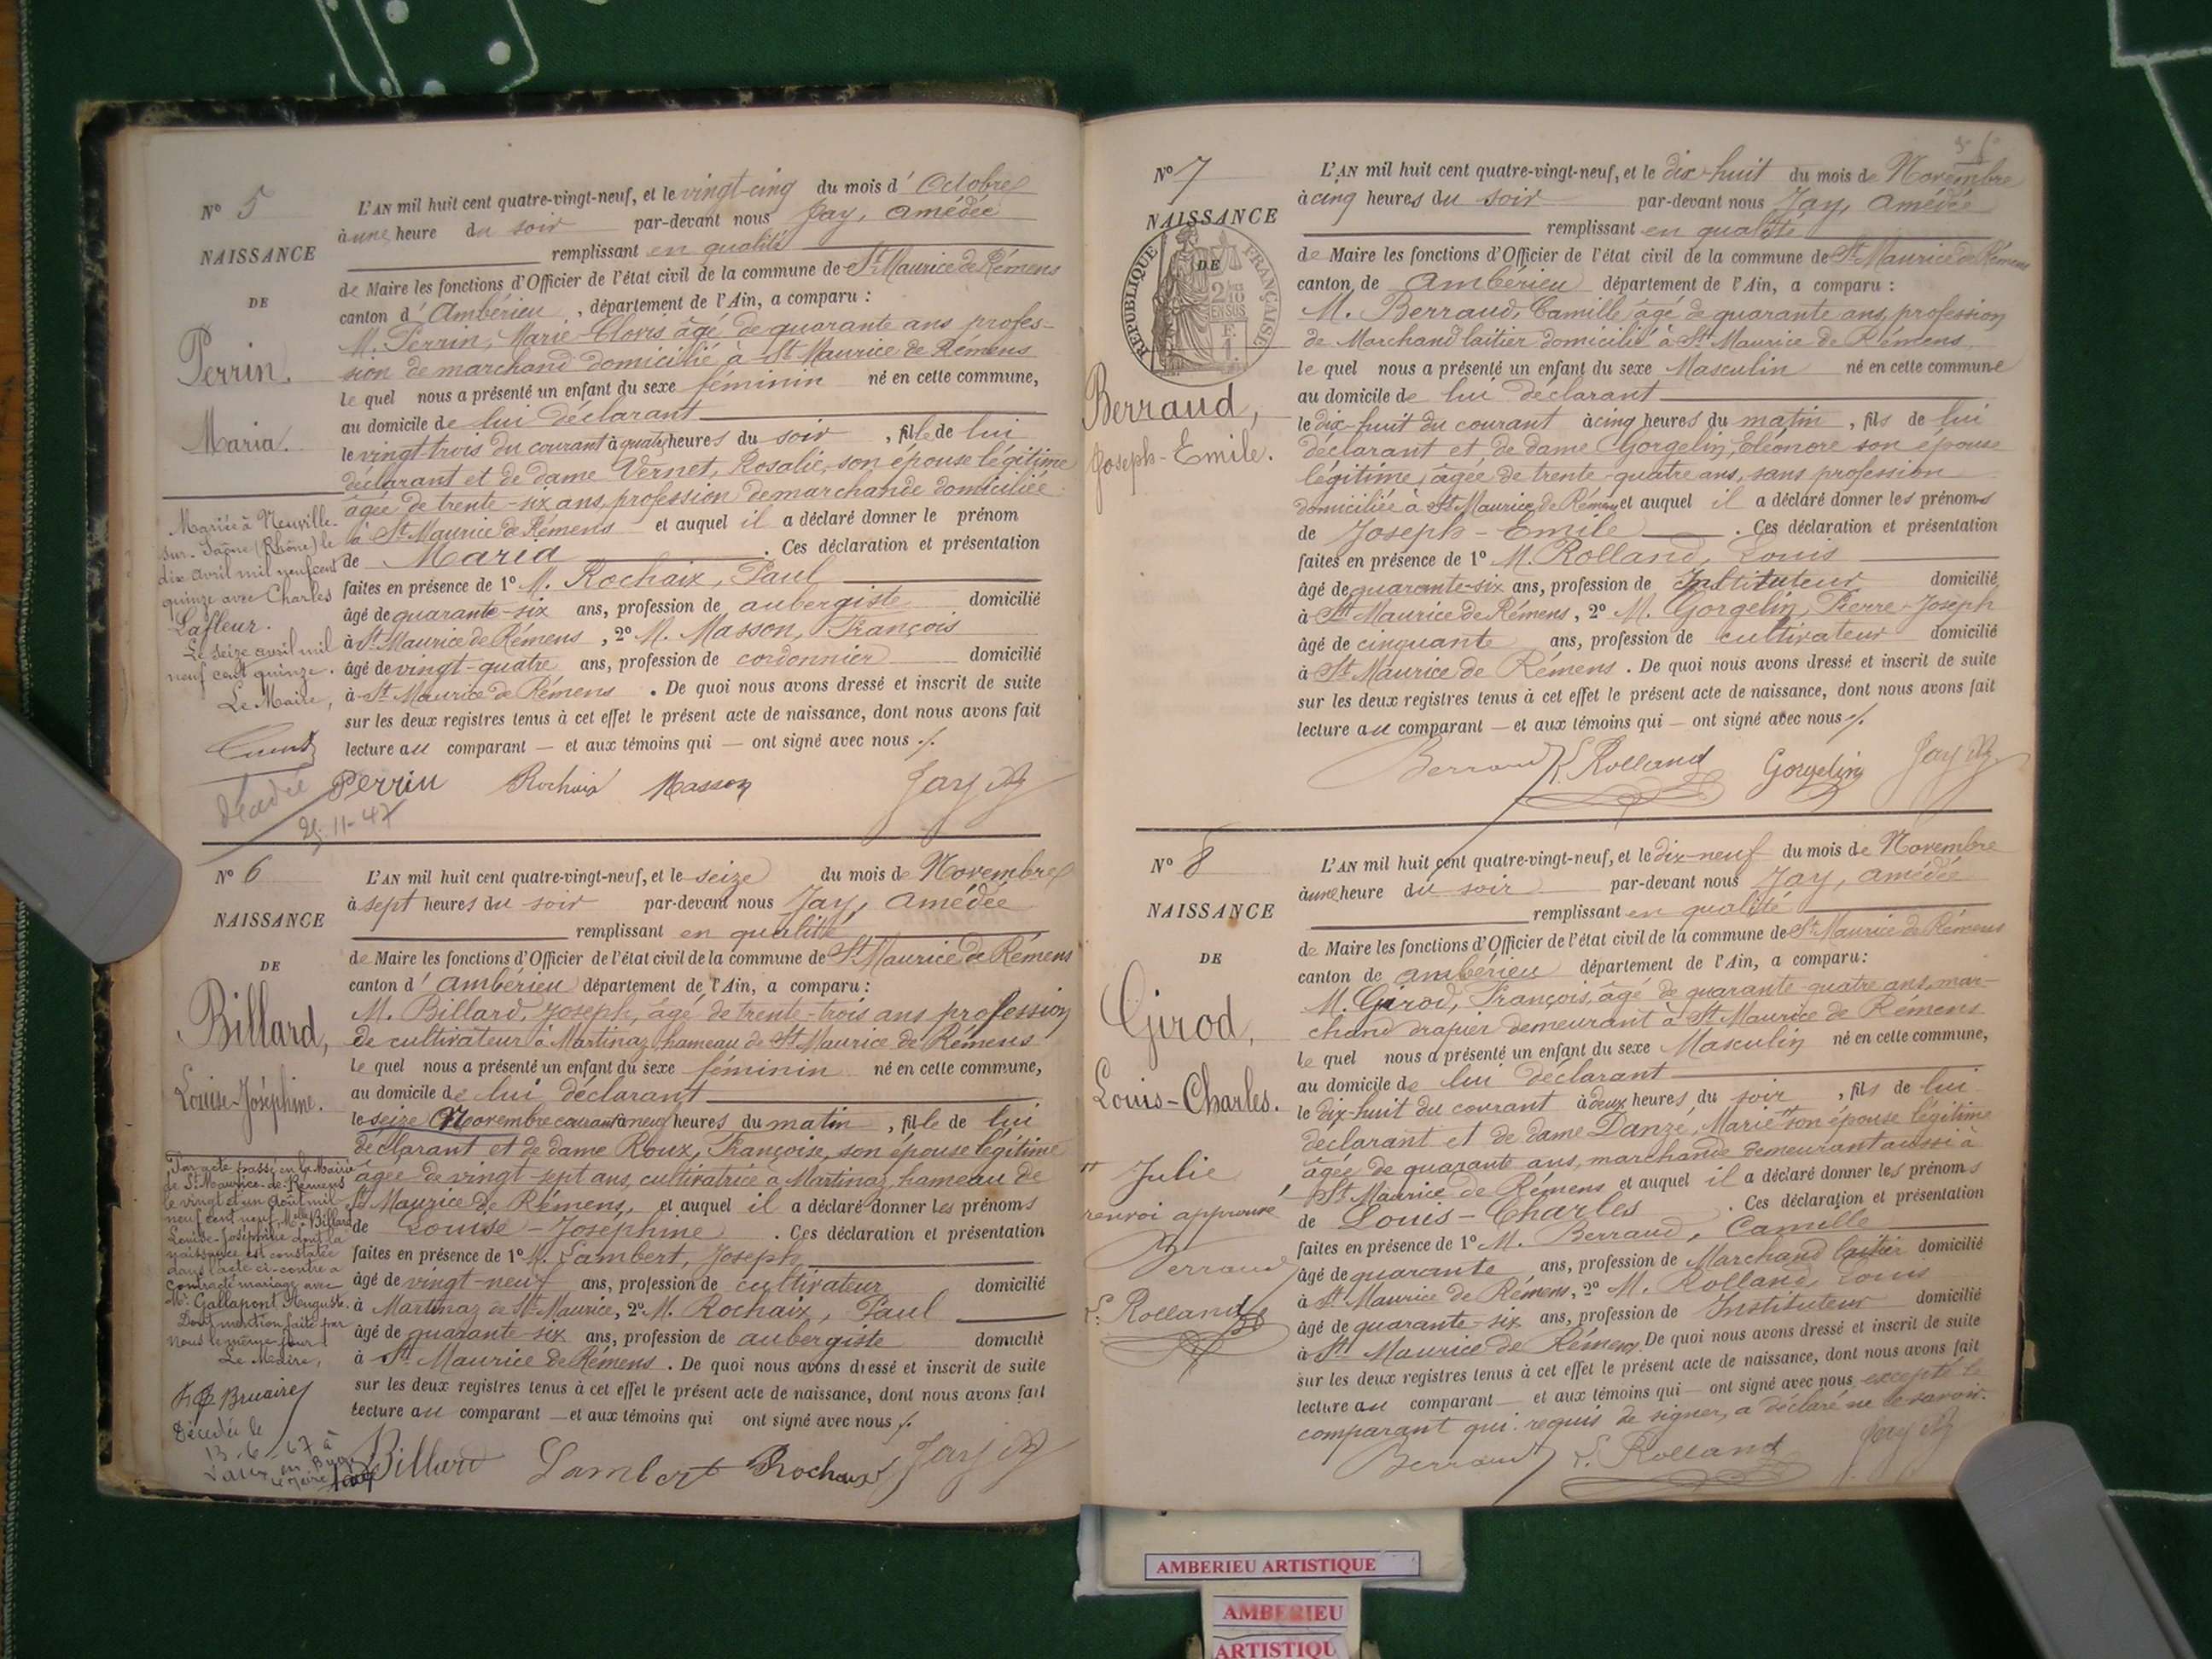 Nº 5
NAISSANCE
DE
Perrin.
Maria.
Mariée à Neuville-
sur-Saône (Rhône) le
dix avril mil neuf cent
quinze avec Charles
Lafleur.
Le seize avril mil
neuf cent quinze.
Le Maire,
L'AN mil huit cent quatre-vingt-neuf, et le vingt-cinq du mois d'Octobre
à une heure du soir par-devant nous Jay, Amédée
remplissant en qualité
de Maire les fonctions d'Officier de l'état civil de la commune de St Maurice de Rémens
canton d'Ambérieu, département de l'Ain, a comparu :
M. Perrin, Marie-Clovis âgé de quarante ans profes-
sion de marchand domicilié à St Maurice de Rémens
le quel nous a présenté un enfant du sexe féminin né en cette commune,
au domicile de lui déclarant
le vingt-trois du courant à quatre heures du soir, fille de lui
déclarant et de dame Vernet, Rosalie, son épouse légitime
âgée de trente-six ans, profession de marchande domiciliée
à St Maurice de Rémens et auquel il a déclaré donner le prénom
de Maria. Ces déclaration et présentation
faites en présence de 1º M. Rochaix, Paul
âgé de quarante-six ans, profession de aubergiste domicilié
à St Maurice de Rémens, 2º M. Masson, François
âgé de vingt-quatre ans, profession de cordonnier domicilié
à St Maurice de Rémens. De quoi nous avons dressé et inscrit de suite
sur les deux registres tenus à cet effet le présent acte de naissance, dont nous avons fait
lecture au comparant — et aux témoins qui — ont signé avec nous ./.
Perrin Rochaix Masson Jay A
décédée
11-47
Nº 6
NAISSANCE
DE
Billard,
Louise-Joséphine.
Par acte passé en la Mairie
de St Maurice-de-Rémens
le vingt et un août mil
neuf cent neuf, Melle Billard
Louise-Joséphine dont la
naissance est constatée
dans l'acte ci-contre a
contracté mariage avec
Mr Gallapont, Auguste.
Dont mention faite par
nous le même jour.
Le Maire,
Bruaire
Décédée le
13-6-67 à
Vaux en Bugey
Le Maire
L'AN mil huit cent quatre-vingt-neuf, et le seize du mois de Novembre
à sept heures du soir par-devant nous Jay, Amédée
remplissant en qualité
de Maire les fonctions d'Officier de l'état civil de la commune de St Maurice de Rémens
canton d'Ambérieu département de l'Ain, a comparu :
M. Billard, Joseph, âgé de trente-trois ans profession
de cultivateur à Martinaz hameau de St Maurice de Rémens
le quel nous a présenté un enfant du sexe féminin né en cette commune,
au domicile de lui déclarant
le seize Novembre courant à neuf heures du matin, fille de lui
déclarant et de dame Roux, Françoise, son épouse légitime
âgée de vingt-sept ans, cultivatrice à Martinaz, hameau de
St Maurice de Rémens, et auquel il a déclaré donner les prénoms
de Louise-Joséphine. Ces déclaration et présentation
faites en présence de 1º M. Lambert, Joseph
âgé de vingt-neuf ans, profession de cultivateur domicilié
à Martinaz de St Maurice, 2º M. Rochaix, Paul
âgé de quarante-six ans, profession de aubergiste domicilié
à St Maurice de Rémens. De quoi nous avons dressé et inscrit de suite
sur les deux registres tenus à cet effet le présent acte de naissance, dont nous avons fait
lecture au comparant — et aux témoins qui ont signé avec nous ./.
Billard Lambert Rochaix Jay A
Nº 7
NAISSANCE
DE
RÉPUBLIQUE FRANÇAISE
2/10
EN SUS
F.
1.
Berraud,
Joseph-Emile.
L'AN mil huit cent quatre-vingt-neuf, et le dix-huit du mois de Novembre
à cinq heures du soir par-devant nous Jay, Amédée
remplissant en qualité
de Maire les fonctions d'Officier de l'état civil de la commune de St Maurice de Rémens
canton de Ambérieu département de l'Ain, a comparu :
M. Berraud, Camille âgé de quarante ans, profession
de Marchand laitier domicilié à St Maurice de Rémens
le quel nous a présenté un enfant du sexe Masculin né en cette commune
au domicile de lui déclarant
le dix-huit du courant à cinq heures du matin, fils de lui
déclarant et de dame Gorgelin, Eléonore son épouse
légitime, âgée de trente-quatre ans, sans profession
domiciliée à St Maurice de Rémens et auquel il a déclaré donner les prénoms
de Joseph-Emile. Ces déclaration et présentation
faites en présence de 1º M. Rolland, Louis
âgé de quarante-six ans, profession de Instituteur domicilié
à St Maurice de Rémens, 2º M. Gorgelin, Pierre-Joseph
âgé de cinquante ans, profession de cultivateur domicilié
à St Maurice de Rémens. De quoi nous avons dressé et inscrit de suite
sur les deux registres tenus à cet effet le présent acte de naissance, dont nous avons fait
lecture au comparant — et aux témoins qui — ont signé avec nous ./.
Berraud L. Rolland Gorgelin Jay A
Nº 8
NAISSANCE
DE
Girod,
Louis-Charles.
Julie
renvoi approuvé
Berraud
L. Rolland
L'AN mil huit cent quatre-vingt-neuf, et le dix-neuf du mois de Novembre
à une heure du soir par-devant nous Jay, Amédée
remplissant en qualité
de Maire les fonctions d'Officier de l'état civil de la commune de St Maurice de Rémens
canton de Ambérieu département de l'Ain, a comparu :
M. Girod, François, âgé de quarante-quatre ans, mar-
chand drapier demeurant à St Maurice de Rémens
le quel nous a présenté un enfant du sexe Masculin né en cette commune,
au domicile de lui déclarant
le dix-huit du courant à deux heures du soir, fils de lui
déclarant et de dame Danzé, Marie son épouse légitime
âgée de quarante ans, marchande demeurant aussi à
St Maurice de Rémens et auquel il a déclaré donner les prénoms
de Louis-Charles. Ces déclaration et présentation
faites en présence de 1º M. Berraud, Camille
âgé de quarante ans, profession de Marchand laitier domicilié
à St Maurice de Rémens, 2º M. Rolland, Louis
âgé de quarante-six ans, profession de Instituteur domicilié
à St Maurice de Rémens. De quoi nous avons dressé et inscrit de suite
sur les deux registres tenus à cet effet le présent acte de naissance, dont nous avons fait
lecture au comparant — et aux témoins qui — ont signé avec nous excepté le
comparant qui requis de signer, a déclaré ne le savoir.
Berraud L. Rolland Jay A
AMBERIEU ARTISTIQUE
AMBERIEU
ARTISTIQU